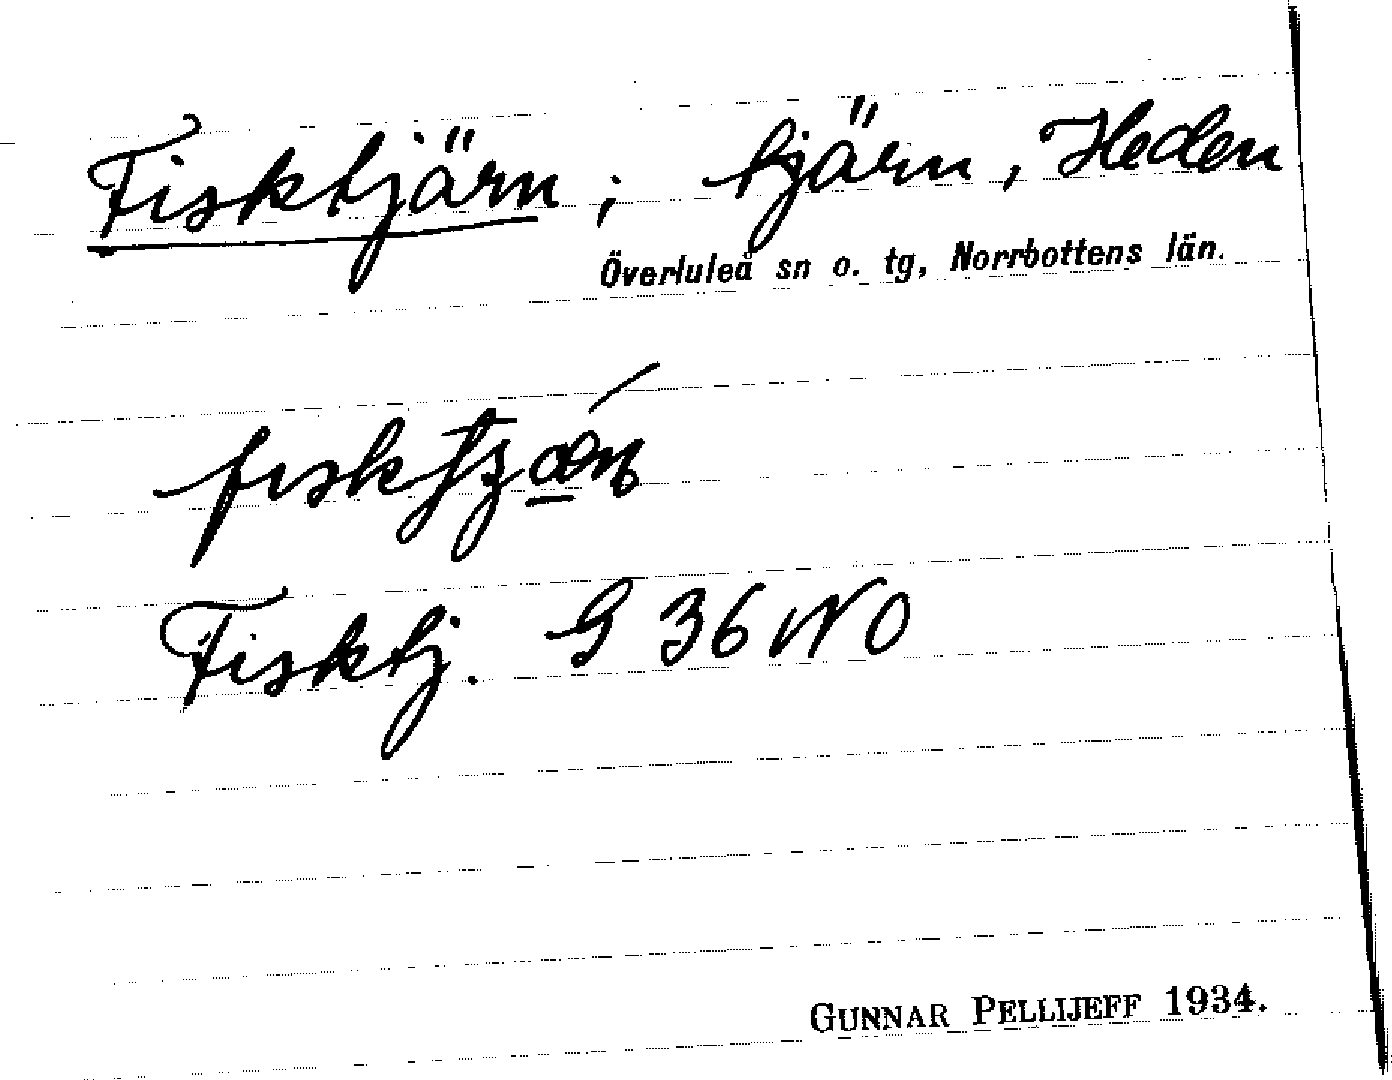 Fisktjärn; tjärn, Heden
Överluleå sn o. tg, Norrbottens län.
Fisktj. G 36 NO
GUNNAR PELLIJEFF 1934.